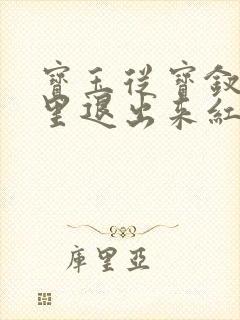 寶玉從寶釵
里退出來紅
庫里亞